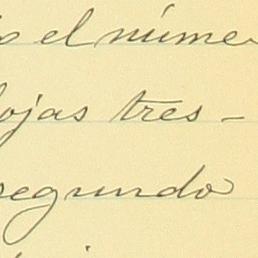 el núme
ojas tres -
segundo